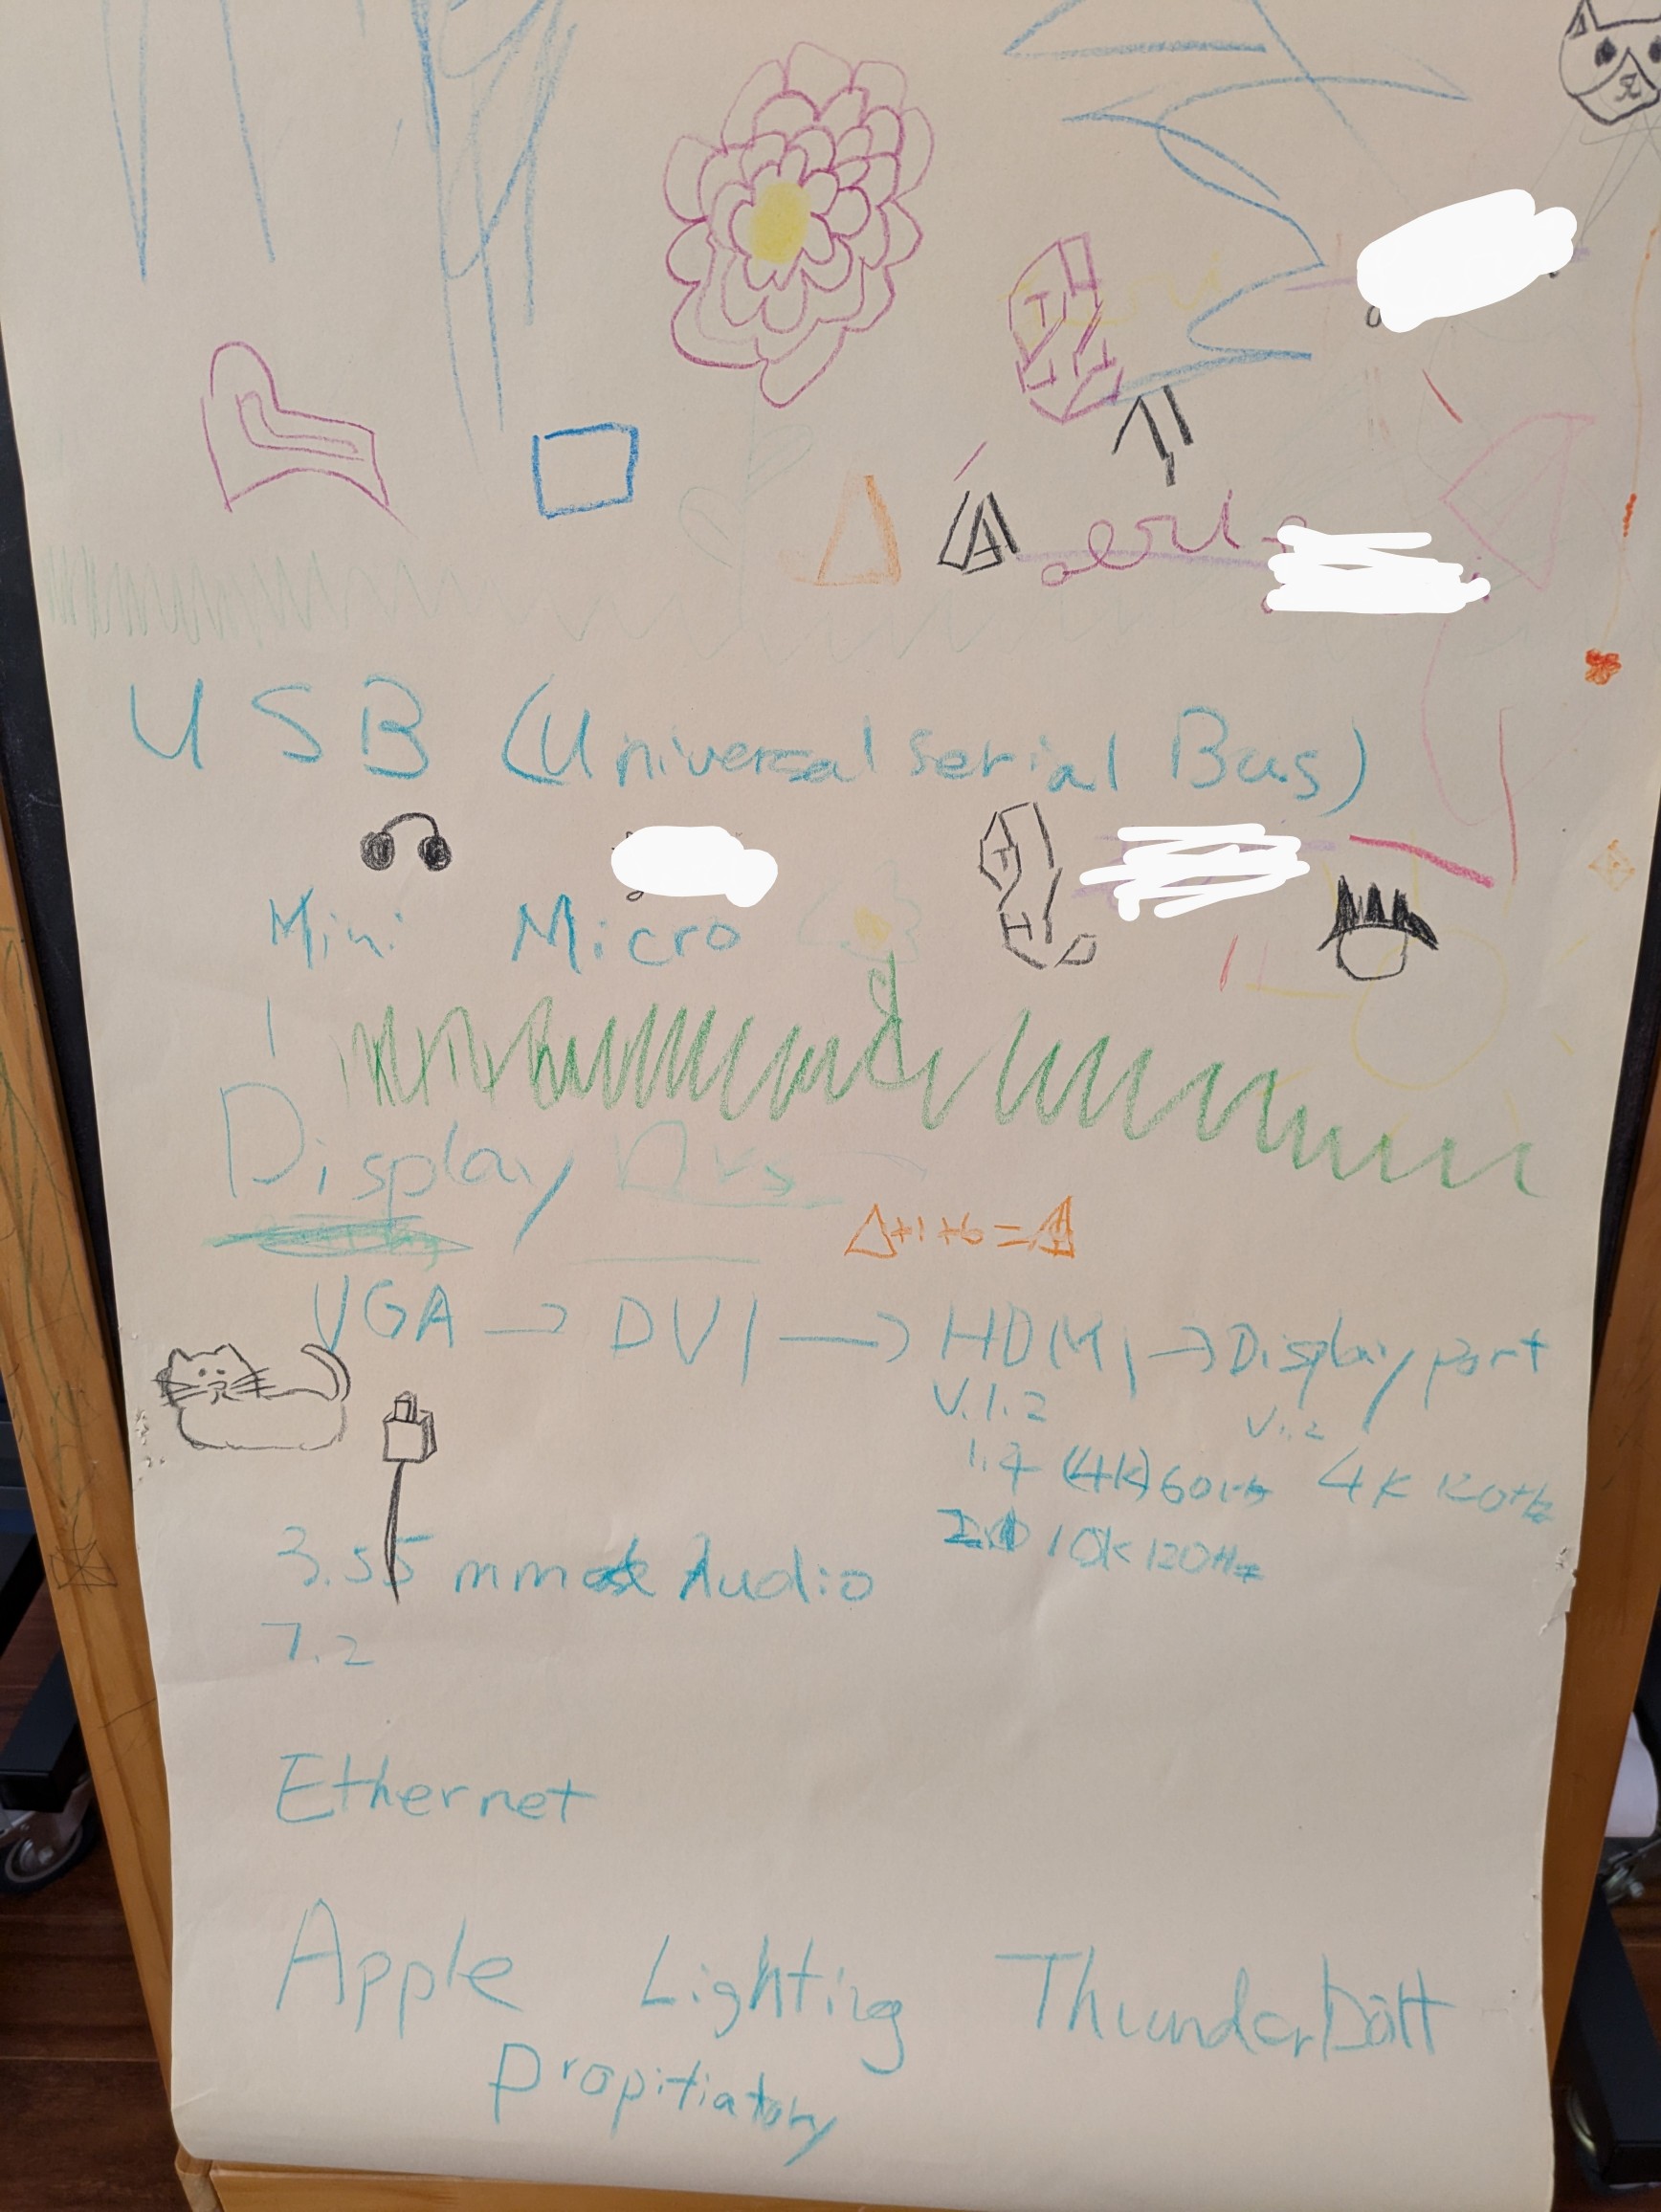 USB (Universal Serial Bus)
Mini Micro
Display
Δ+1+6=
VGA → DVI → HDMI → Display port
V.1.2
1.4 (4K) 60Hz 4K 120Hz
10K 120Hz
3.55 mm Audio
7.2
Ethernet
Apple Lighting Thunderbolt
Propitiatory